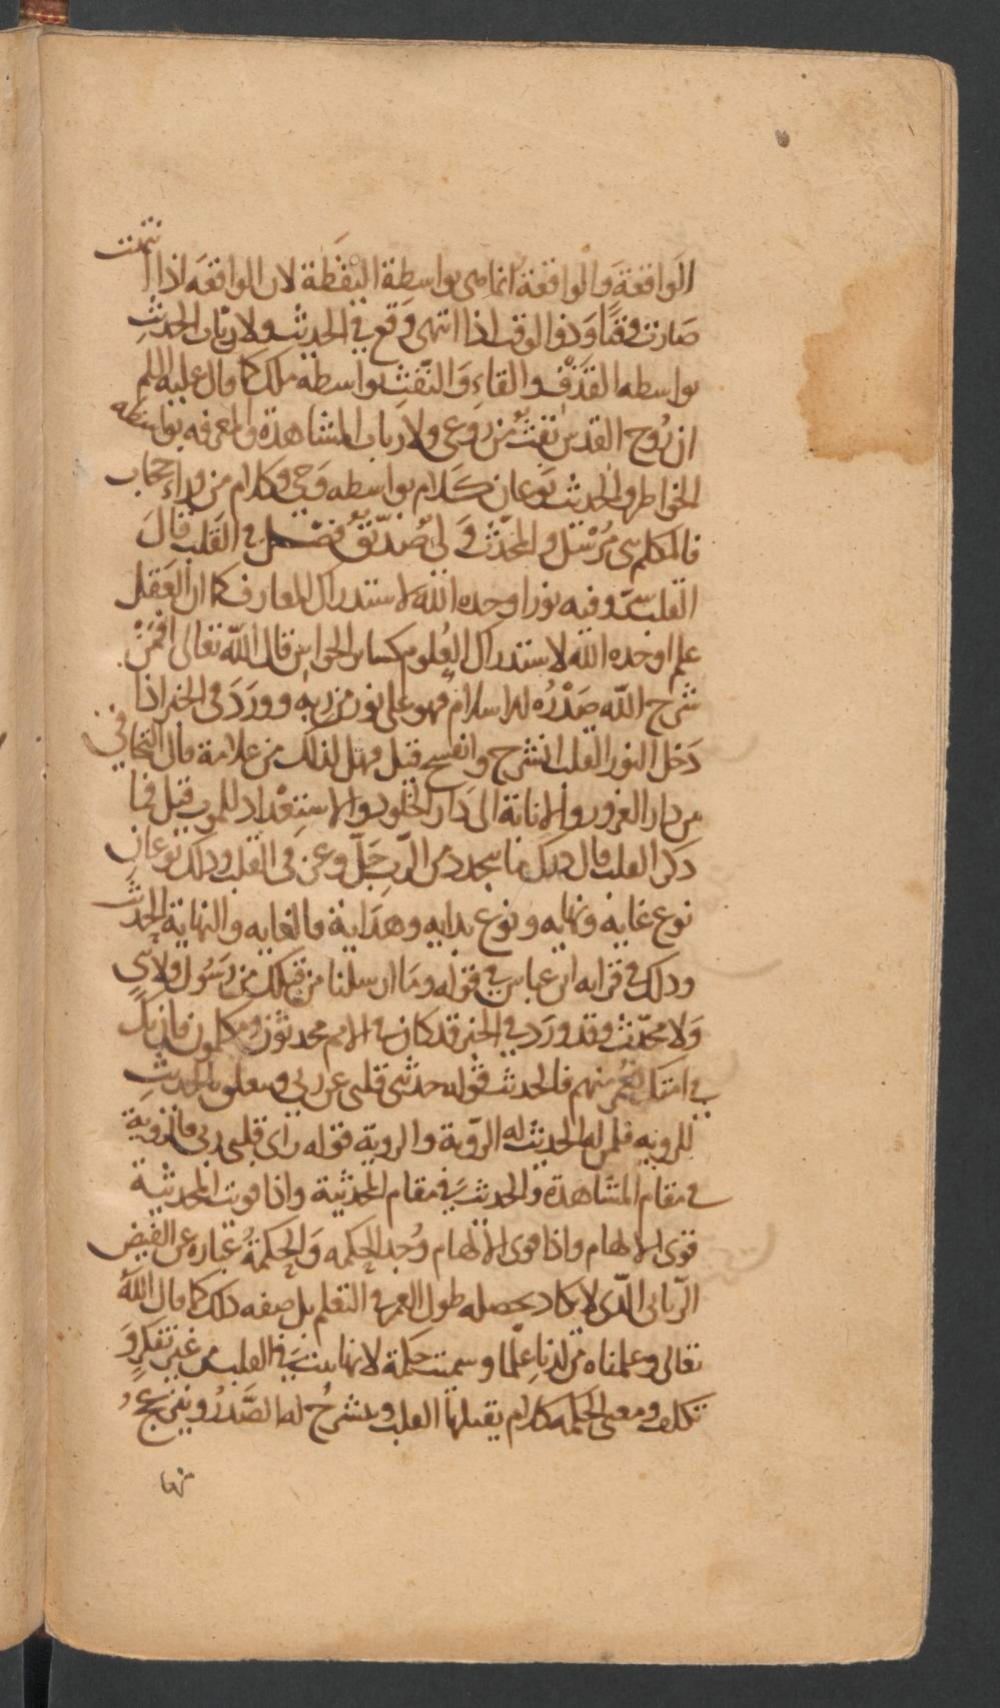 الواقعة والواقعة انما هي بواسطة اليقظة لان الواقعة اذا انتهت
صارت وقتا وذو الوقت اذا انتهى وقع في الحديث ولارباب الحديث
بواسطه القذف والقاء والنفث بواسطه ملك كما قال عليه السلم
ان روح القدس نفث في روعي ولارباب المشاهدة والمعرفه بواسطه
الخواطر والحديث نوعان كلام بواسطه وحي وكلام من وراء حجاب
فالمكلم نبي مرسل والمحدث ولي صديق في القلب قال
القلب سر وفيه نور اوجده الله لاستدراك المعارف كما ان العقل
علم اوجده الله لاستدراك العلوم كسائر الحواس قال الله تعالى افمن
شرح الله صدره للاسلام فهو على نور من ربه وورد في الخبر اذا
دخل النور القلب انشرح وانفسح قيل فهل لذلك من علامة قال التجافي
من دار الغرور والانابة الى دار الخلود والاستعداد للموت قيل فما
ذكر القلب قال ذلك ما يتجدد من الرب جل وعز في القلب وذلك نوعان
نوع غايه ونهايه ونوع بدايه وهداية فالغايه والنهاية الحديث
وذلك في قراه ابن عباس في قوله وما ارسلنا من قبلك من رسول ولا نبي
ولا محدث وقد ورد في الخبر قد كان في الامم محدثون ومكلمون فان يك
في امتك فعمر منهم فالحديث قوله حدثني قلبي عن ربي وصاحب الحديث
للرويه فلمن له الحديث له الروية والروية قوله راى قلبي ربي فالروية
في مقام المشاهدة والحديث في مقام المحدثية واذا قويت المحدثية
قوى الالهام واذا قوى الالهام وجد الحكمه والحكمة عباره عن الفيض
الرباني الذي لا يكاد يحصله طول العمر في التعلم بل صفه ذلك كما قال الله
تعالى وعلمناه من لدنا علما وسميت حكمة لانها تنبت في القلب من غير تفكر و
تكلف ومعنى الحكمه كلام يقبلها القلب وينشرح لها الصدر وينزعج
منها